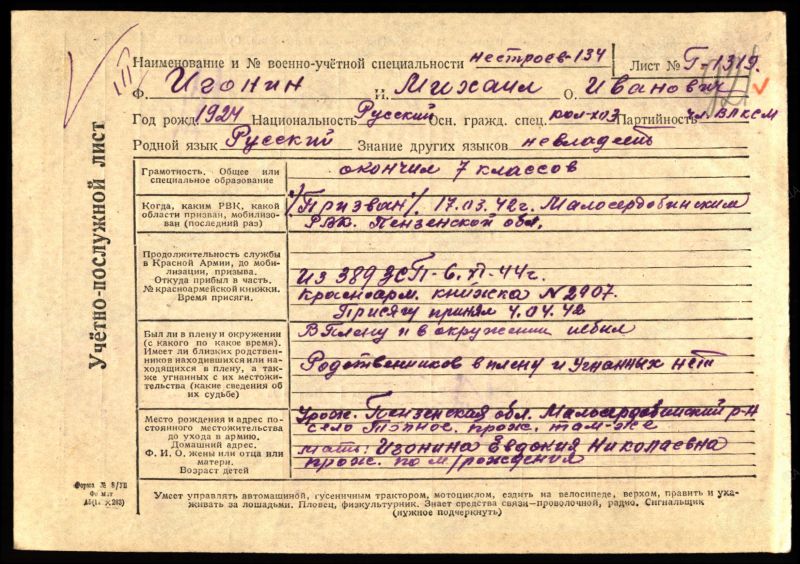 Учётно-послужной лист
III
Наименование и № военно-учётной специальности нестроев-134 Лист № Г-1319.
Ф. Игонин И. Михаил О. Иванович
Год рожд. 1924 Национальность Русский Осн. гражд. спец. кол-хоз Партийность чл. ВЛКСМ
Родной язык Русский Знание других языков невладеет
Грамотность. Общее или
специальное образование
окончил 7 классов
Когда, каким РВК, какой
области призван, мобилизо-
ван (последний раз)
/Призван/. 17.03.42г. Малосердобинским
РВК. Пензенской обл.
Продолжительность службы
в Красной Армии, до мо-
билизации, призыва.
Откуда прибыл в часть.
№ красноармейской книжки.
Время присяги.
Из 389 ЗСП - 6. VI - 44г.
Красноарм. книжка N 2907.
Присягу принял 4.04.42
Был ли в плену и окружении
(с какого по какое время).
Имеет ли близких родствен-
ников находившихся или на-
ходящихся в плену, а так-
же угнанных с их местожи-
тельства (какие сведения об
их судьбе)
В плену и в окружении небыл
Родственников в плену и угнанных нет
Место рождения и адрес по-
стоянного местожительства
до ухода в армию.
Домашний адрес.
Ф. И. О. жены или отца или
матери.
Возраст детей
Урож. Пензенская обл. Малосердобинский р-н
село Топлое. прож. там-же
мать: Игонина Евдокия Николаевна
прож. по м/рождения
Форма № 8/УП
Умеет управлять автомашиной, гусеничным трактором, мотоциклом, ездить на велосипеде, верхом, править и уха-
живать за лошадьми. Пловец, физкультурник. Знает средства связи—проволочной, радио. Сигнальщик
(нужное подчеркнуть)